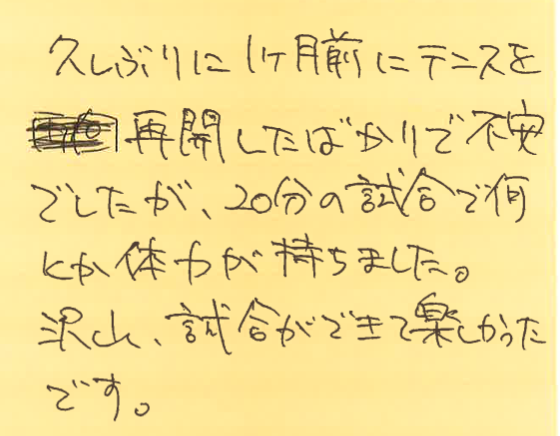 久しぶりに1ヶ月前にテニスを
再開したばかりで不安
でしたが、20分の試合で何
とか体力が持ちました。
沢山、試合ができて楽しかった
です。